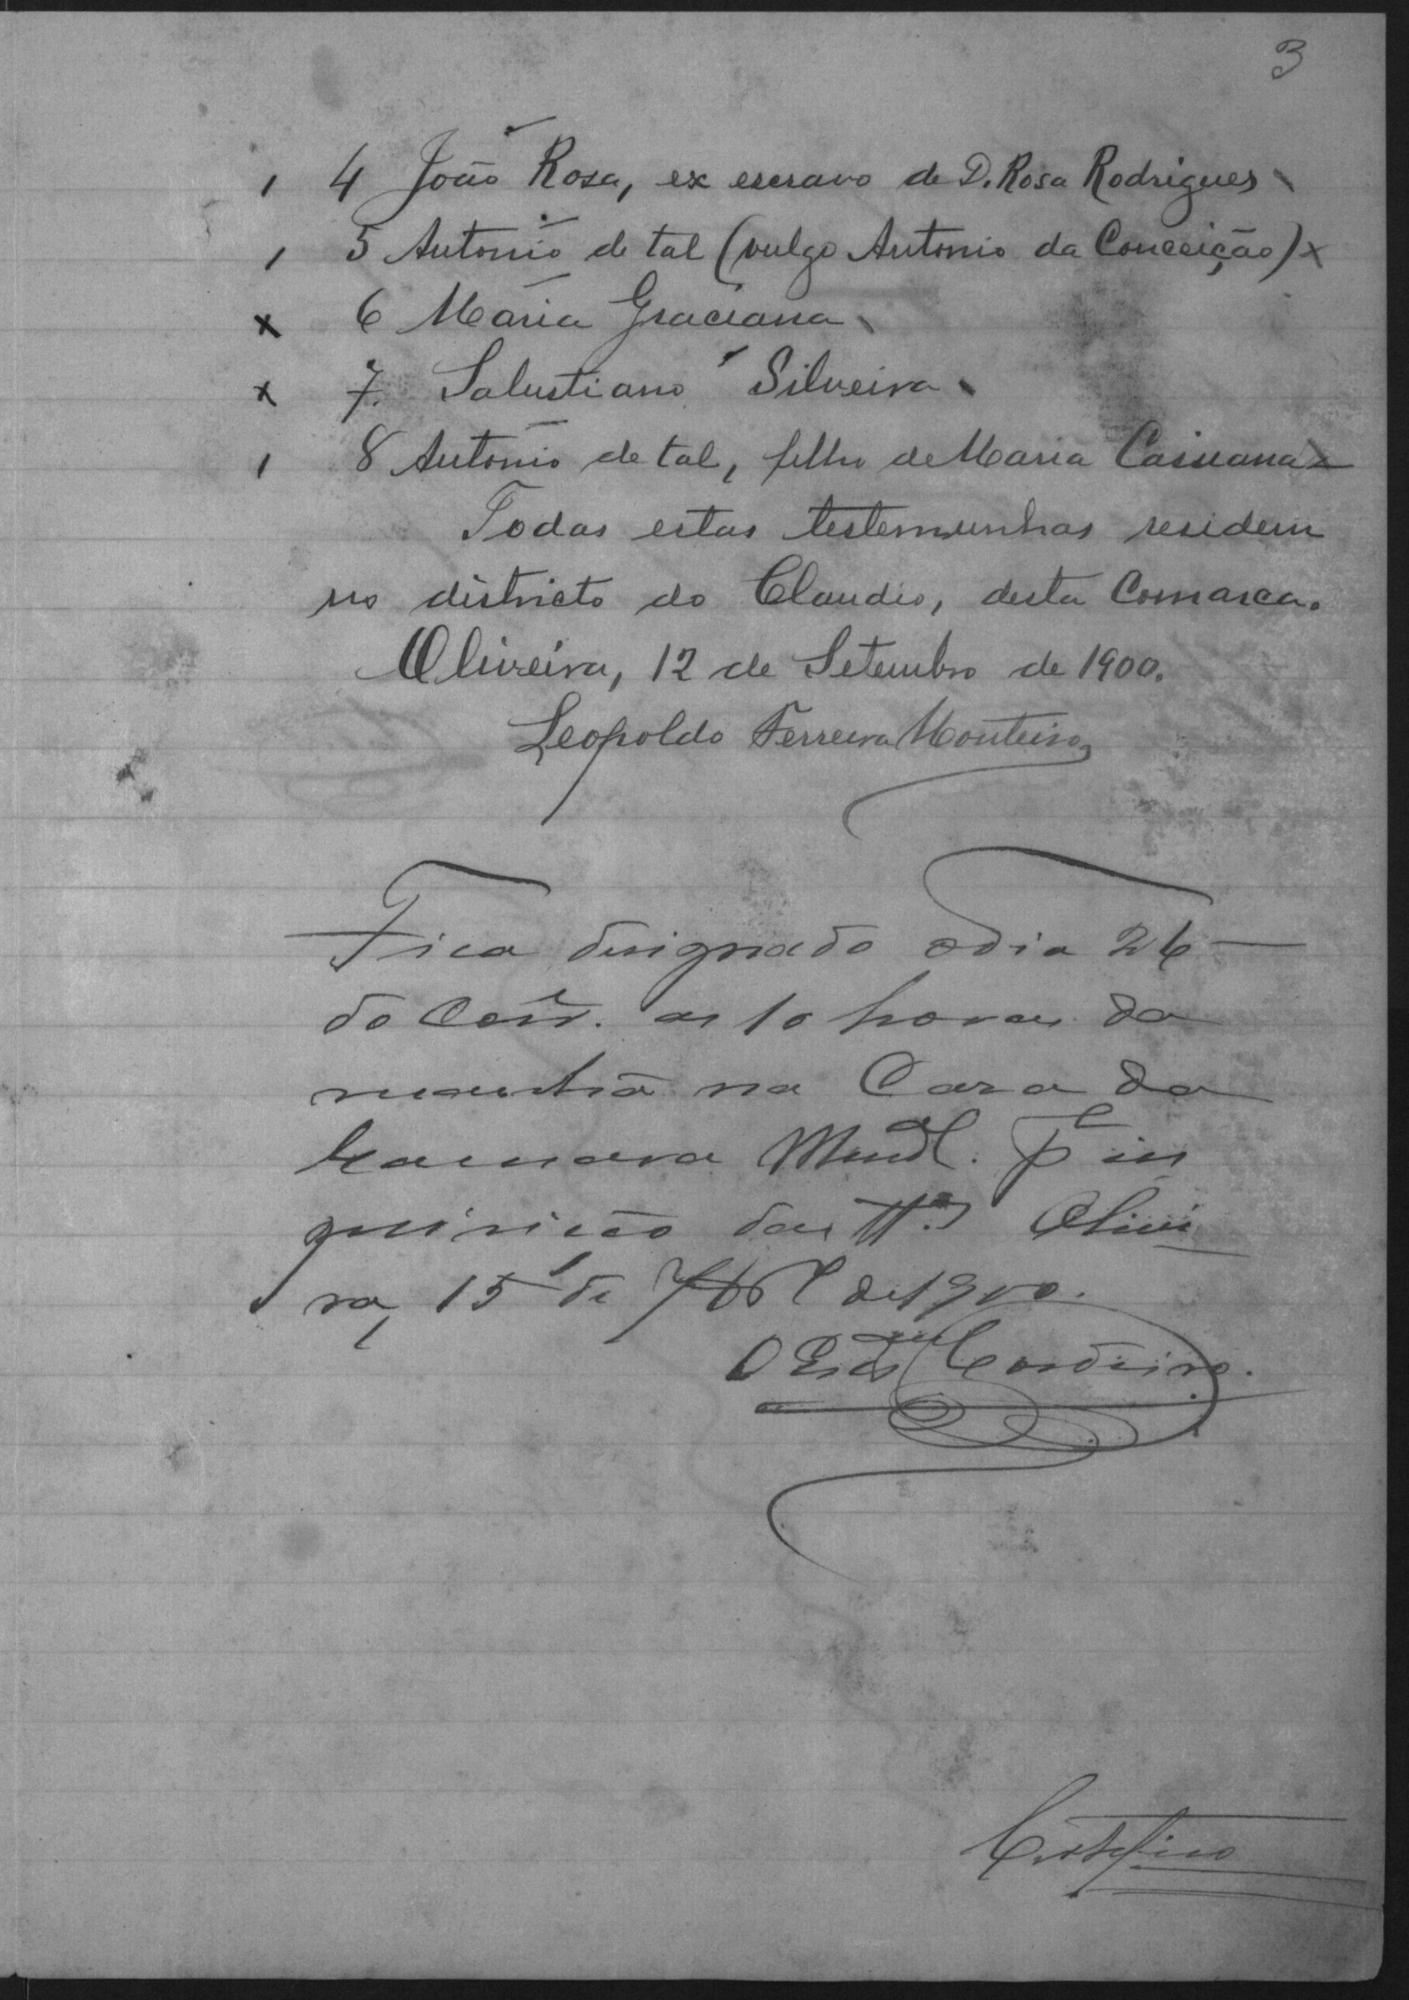 3
4 João Rosa, ex escravo de D. Rosa Rodrigues
5 Antonio de tal (vulgo Antonio da Conceição) x
x 6 Maria Graciana
x 7. Salustiano Silveira
8 Antonio de tal, filho de Maria
Todas estas testemunhas residem
no districto do Claudio, desta Comarca.
Oliveira, 12 de Setembro de 1900.
Leopoldo Ferreira Monteiro
Fica designado o dia 26
do Corr. as 10 horas da
manhã na Casa da
Camara Munal. pa in
quirição das ttas Olivei
ra, 15 de 7bro de 1900.
O Cordeiro.
Certifico